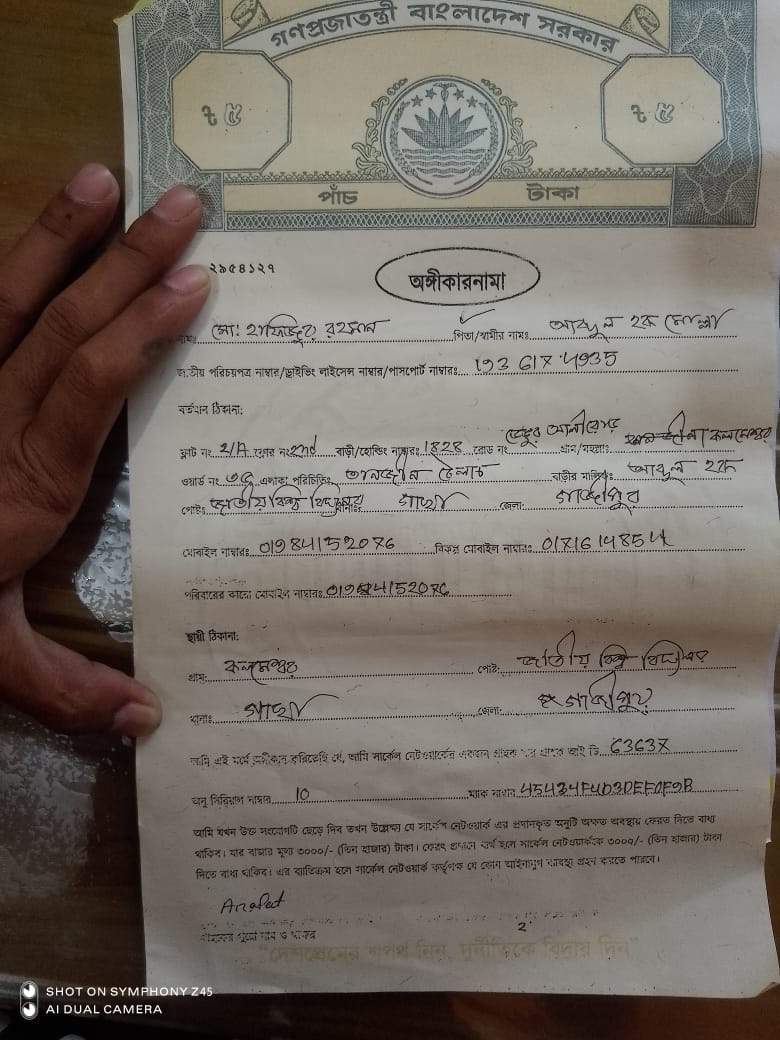 গণপ্রজাতন্ত্রী বাংলাদেশ সরকার
৳ ৫ ৳ ৫
পাঁচ টাকা
২৯৫৪১২৭
অঙ্গীকারনামা
নাম: মো: হাফিজুর রহমান পিতা/স্বামীর নাম: আব্দুল হক মোল্লা
জাতীয় পরিচয়পত্র নাম্বার/ড্রাইভিং লাইসেন্স নাম্বার/পাসপোর্ট নাম্বারঃ
বর্তমান ঠিকানা:
ফ্লাট নং 2/A ফ্লোর নং 2nd বাড়ী/হোল্ডিং নাম্বারঃ 1828 রোড নং গ্রাম/মহল্লা: কলমেশ্বর
ওয়ার্ড নং ৩৫ এলাকা পরিচিতিঃ বাড়ীর মালিক: আব্দুল হক
পোষ্টঃ জাতীয় বিশ্ব বিদ্যালয় গাছা জেলা: গাজীপুর
মোবাইল নাম্বারঃ 01984152076 বিকল্প মোবাইল নাম্বার:
পরিবারের কারো মোবাইল নাম্বারঃ
স্থায়ী ঠিকানা:
গ্রাম: কলমেশ্বর পোষ্ট: জাতীয় বিশ্ব বিদ্যালয়
থানাঃ গাছা জেলা: গাজীপুর
আমি এই মর্মে অঙ্গীকার করিতেছি যে, আমি সার্কেল নেটওয়ার্কের একজন গ্রাহক যার গ্রাহক আই ডি
অনু সিরিয়াল নাম্বার 10 ম্যাক নাম্বার
আমি যখন উক্ত সংযোগটি ছেড়ে দিব তখন উল্লেখ্য যে সার্কেল নেটওয়ার্ক এর প্রদানকৃত অনুটি অক্ষত অবস্থায় ফেরত দিতে বাধ্য
থাকিব। যার বাজার মূল্য ৩০০০/- (তিন হাজার) টাকা। ফেরৎ প্রদানে ব্যর্থ হলে সার্কেল নেটওয়ার্ককে ৩০০০/- (তিন হাজার) টাকা
দিতে বাধ্য থাকিব। এর ব্যতিক্রম হলে সার্কেল নেটওয়ার্ক কর্তৃপক্ষ যে কোন আইনানুগ ব্যবস্থা গ্রহন করতে পারবে।
Arafat
2
"দেশপ্রেমের শপথ নিন, দুর্নীতিকে বিদায় দিন"
SHOT ON SYMPHONY Z45
AI DUAL CAMERA